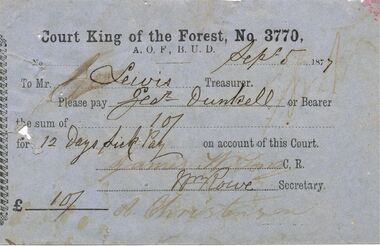 Court King of the Forest, No. 3770,
A. O. F., B. U. D.
No. Sept 5 1877
To Mr. Lewis Treasurer.
Please pay Geo. Dunkell or Bearer
the sum of 10/
for 12 Days Sick Pay on account of this Court.
C. R.
Wm Rowe Secretary.
£ 10/